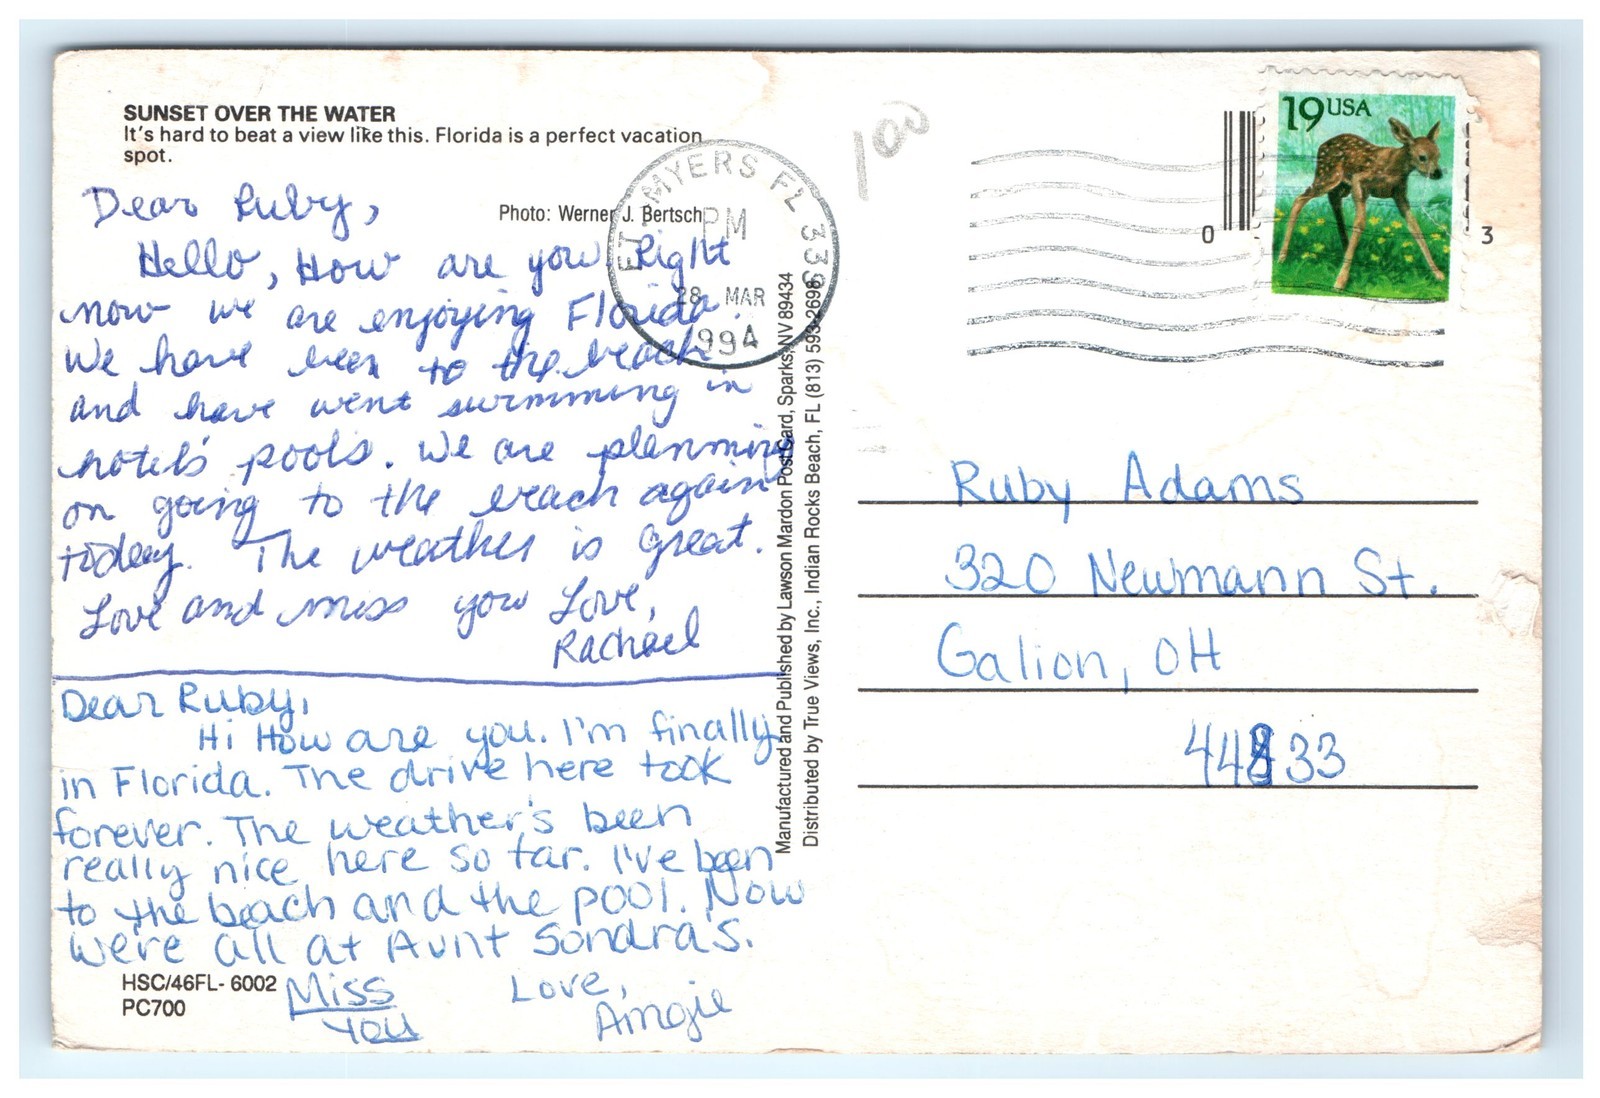 SUNSET OVER THE WATER
It's hard to beat a view like this. Florida is a perfect vacation
spot.
Photo: Werner J. Bertsch
Dear Ruby,
Hello, How are you. Right
now we are enjoying Florida.
We have been to the beach
and have went swimming in
hotel's pools. We are planning
on going to the beach again
today. The weather is great.
Love and miss you Love,
Rachael
Dear Ruby,
Hi How are you. I'm finally
in Florida. The drive here took
forever. The weather's been
really nice here so far. I've been
to the beach and the pool. Now
we're all at Aunt Sondra's.
Miss
You
Love,
Amgie
HSC/46FL- 6002
PC700
Manufactured and Published by Lawson Mardon Post Card, Sparks, NV 89434
Distributed by True Views, Inc., Indian Rocks Beach, FL (813) 593-2698
FT MYERS FL 339
PM
28 MAR
1994
100
19 USA
0 3
Ruby Adams
320 Newmann St.
Galion, OH
44833